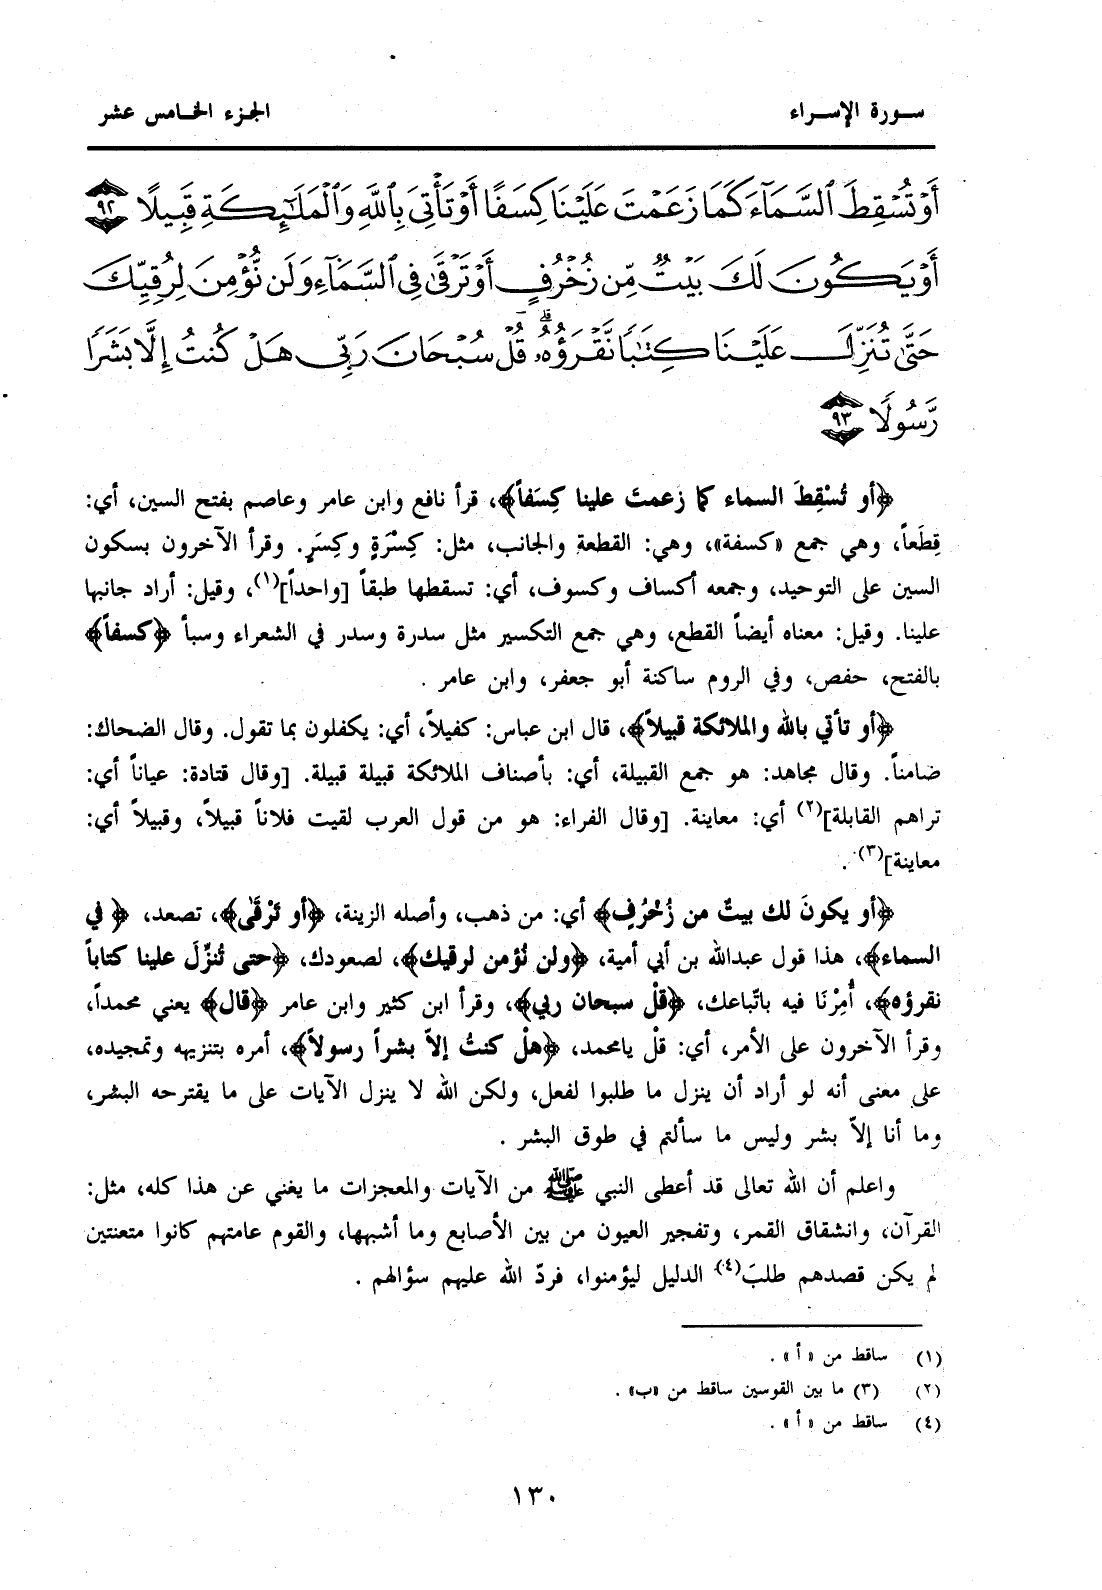 سورة الإسراء
الجزء الخامس عشر
أَوْ تُسْقِطَ ٱلسَّمَآءَ كَمَا زَعَمْتَ عَلَيْنَا كِسَفًا أَوْ تَأْتِىَ بِٱللَّهِ وَٱلْمَلَٰٓئِكَةِ قَبِيلًا ٩٢
أَوْ يَكُونَ لَكَ بَيْتٌ مِّن زُخْرُفٍ أَوْ تَرْقَىٰ فِى ٱلسَّمَآءِ وَلَن نُّؤْمِنَ لِرُقِيِّكَ
حَتَّىٰ تُنَزِّلَ عَلَيْنَا كِتَٰبًا نَّقْرَؤُهُۥ ۗ قُلْ سُبْحَانَ رَبِّى هَلْ كُنتُ إِلَّا بَشَرًا
رَّسُولًا ٩٣
﴿أو تُسْقِطَ السماء كما زعمتَ علينا كِسَفاً﴾، قرأ نافع وابن عامر وعاصم بفتح السين، أي:
قِطَعاً، وهي جمع «كسفة»، وهي: القطعة والجانب، مثل: كِسْرَةٍ وكِسَرٍ. وقرأ الآخرون بسكون
السين على التوحيد، وجمعه أكساف وكسوف، أي: تسقطها طبقاً [واحداً](١)، وقيل: أراد جانبها
علينا. وقيل: معناه أيضاً القطع، وهي جمع التكسير مثل سدرة وسدر في الشعراء وسبأ ﴿كسفاً﴾
بالفتح، حفص، وفي الروم ساكنة أبو جعفر، وابن عامر .
﴿أو تأتي بالله والملائكة قبيلاً﴾، قال ابن عباس: كفيلاً، أي: يكفلون بما تقول. وقال الضحاك:
ضامناً. وقال مجاهد: هو جمع القبيلة، أي: بأصناف الملائكة قبيلة قبيلة. [وقال قتادة: عياناً أي:
تراهم القابلة](٢) أي: معاينة. [وقال الفراء: هو من قول العرب لقيت فلاناً قبيلاً، وقبيلاً أي:
معاينة](٣) .
﴿أو يكونَ لك بيتٌ من زُخْرُفٍ﴾ أي: من ذهب، وأصله الزينة، ﴿أو تَرْقَىٰ﴾، تصعد، ﴿في
السماء﴾، هذا قول عبدالله بن أبي أمية، ﴿ولن نُؤمن لرقيك﴾، لصعودك، ﴿حتى تُنزِّلَ علينا كتاباً
نقرؤه﴾، أُمِرْنَا فيه باتّباعك، ﴿قلْ سبحان ربي﴾، وقرأ ابن كثير وابن عامر ﴿قال﴾ يعني محمداً،
وقرأ الآخرون على الأمر، أي: قلْ يامحمد، ﴿هلْ كنتُ إلاّ بشراً رسولاً﴾، أمره بتنزيهه وتمجيده،
على معنى أنه لو أراد أن ينزل ما طلبوا لفعل، ولكن الله لا ينزل الآيات على ما يقترحه البشر،
وما أنا إلاّ بشر وليس ما سألتم في طوق البشر .
واعلم أن الله تعالى قد أعطى النبي ﷺ من الآيات والمعجزات ما يغني عن هذا كله، مثل:
القرآن، وانشقاق القمر، وتفجير العيون من بين الأصابع وما أشبهها، والقوم عامتهم كانوا متعنتين
لم يكن قصدهم طلبَ(٤) الدليل ليؤمنوا، فردّ الله عليهم سؤالهم .
(١) ساقط من «أ» .
(٢) (٣) ما بين القوسين ساقط من «ب» .
(٤) ساقط من «أ» .
١٣٠